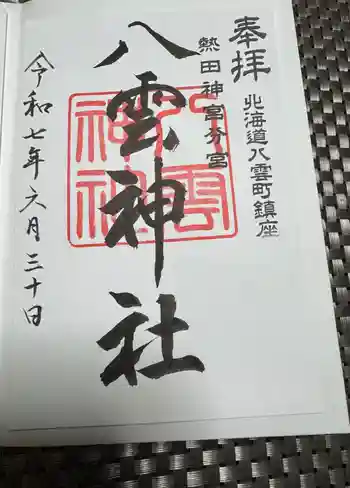 奉拝
北海道八雲町鎮座
熱田神宮分宮
八雲神社
八雲
神社
令和七年六月三十日